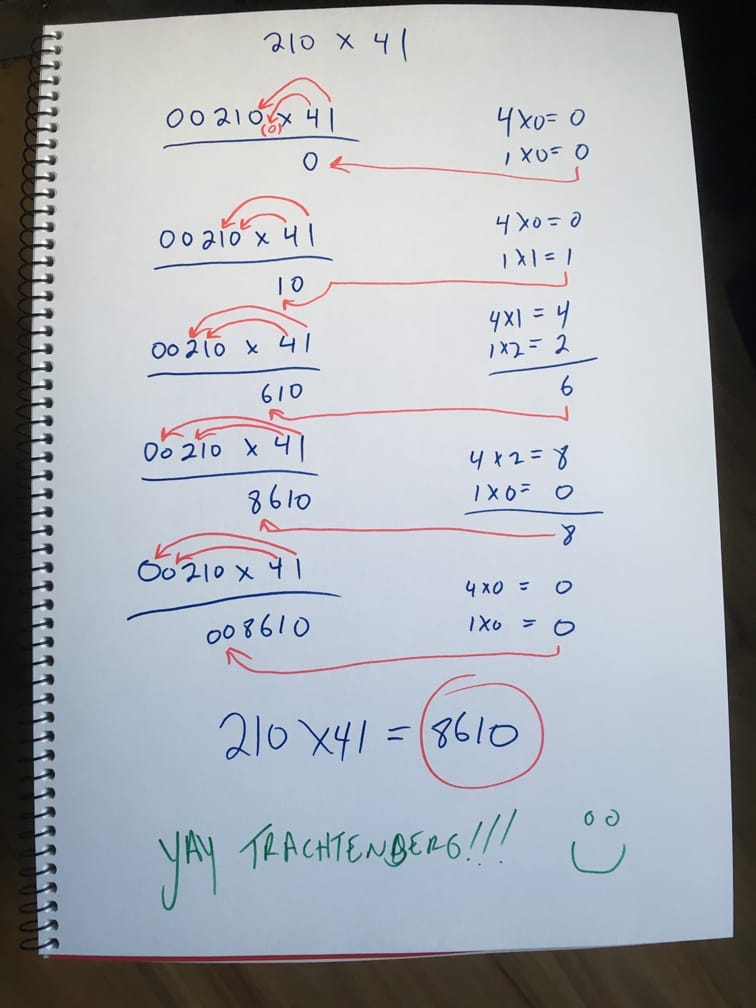 210 x 41
00210 x 41
(0)
0
4x0= 0
1x0= 0
00210 x 41
10
4x0= 0
1x1= 1
00210 x 41
610
4x1 = 4
1x2= 2
6
00210 x 41
8610
4x2= 8
1x0= 0
8
00210 x 41
008610
4x0 = 0
1x0 = 0
210 x41 = 8610
YAY TRACHTENBERG!!!